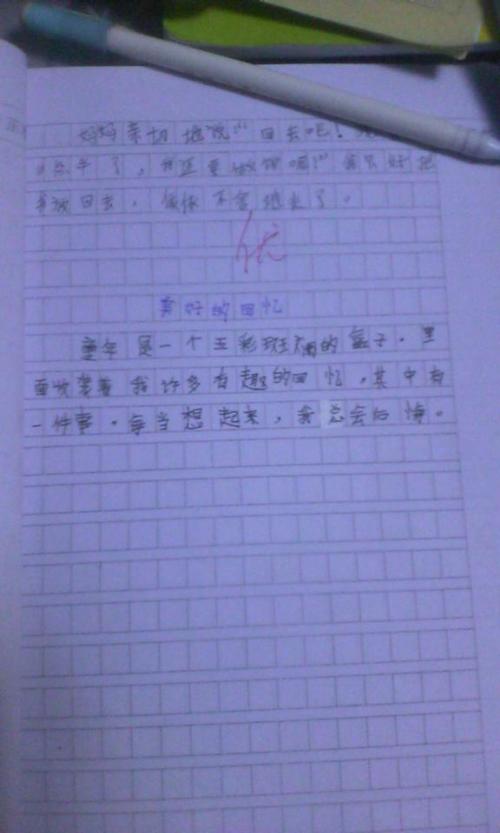 妈妈亲切地说"回去吧!
点半了,我还要做饭呢!"我只好把
回去,依依不舍地走了。
优
美好的回忆
童年是一个五彩斑斓的盒子。里
面收藏着我许多有趣的回忆。其中有
一件事。每当想起来,我总会后悔。